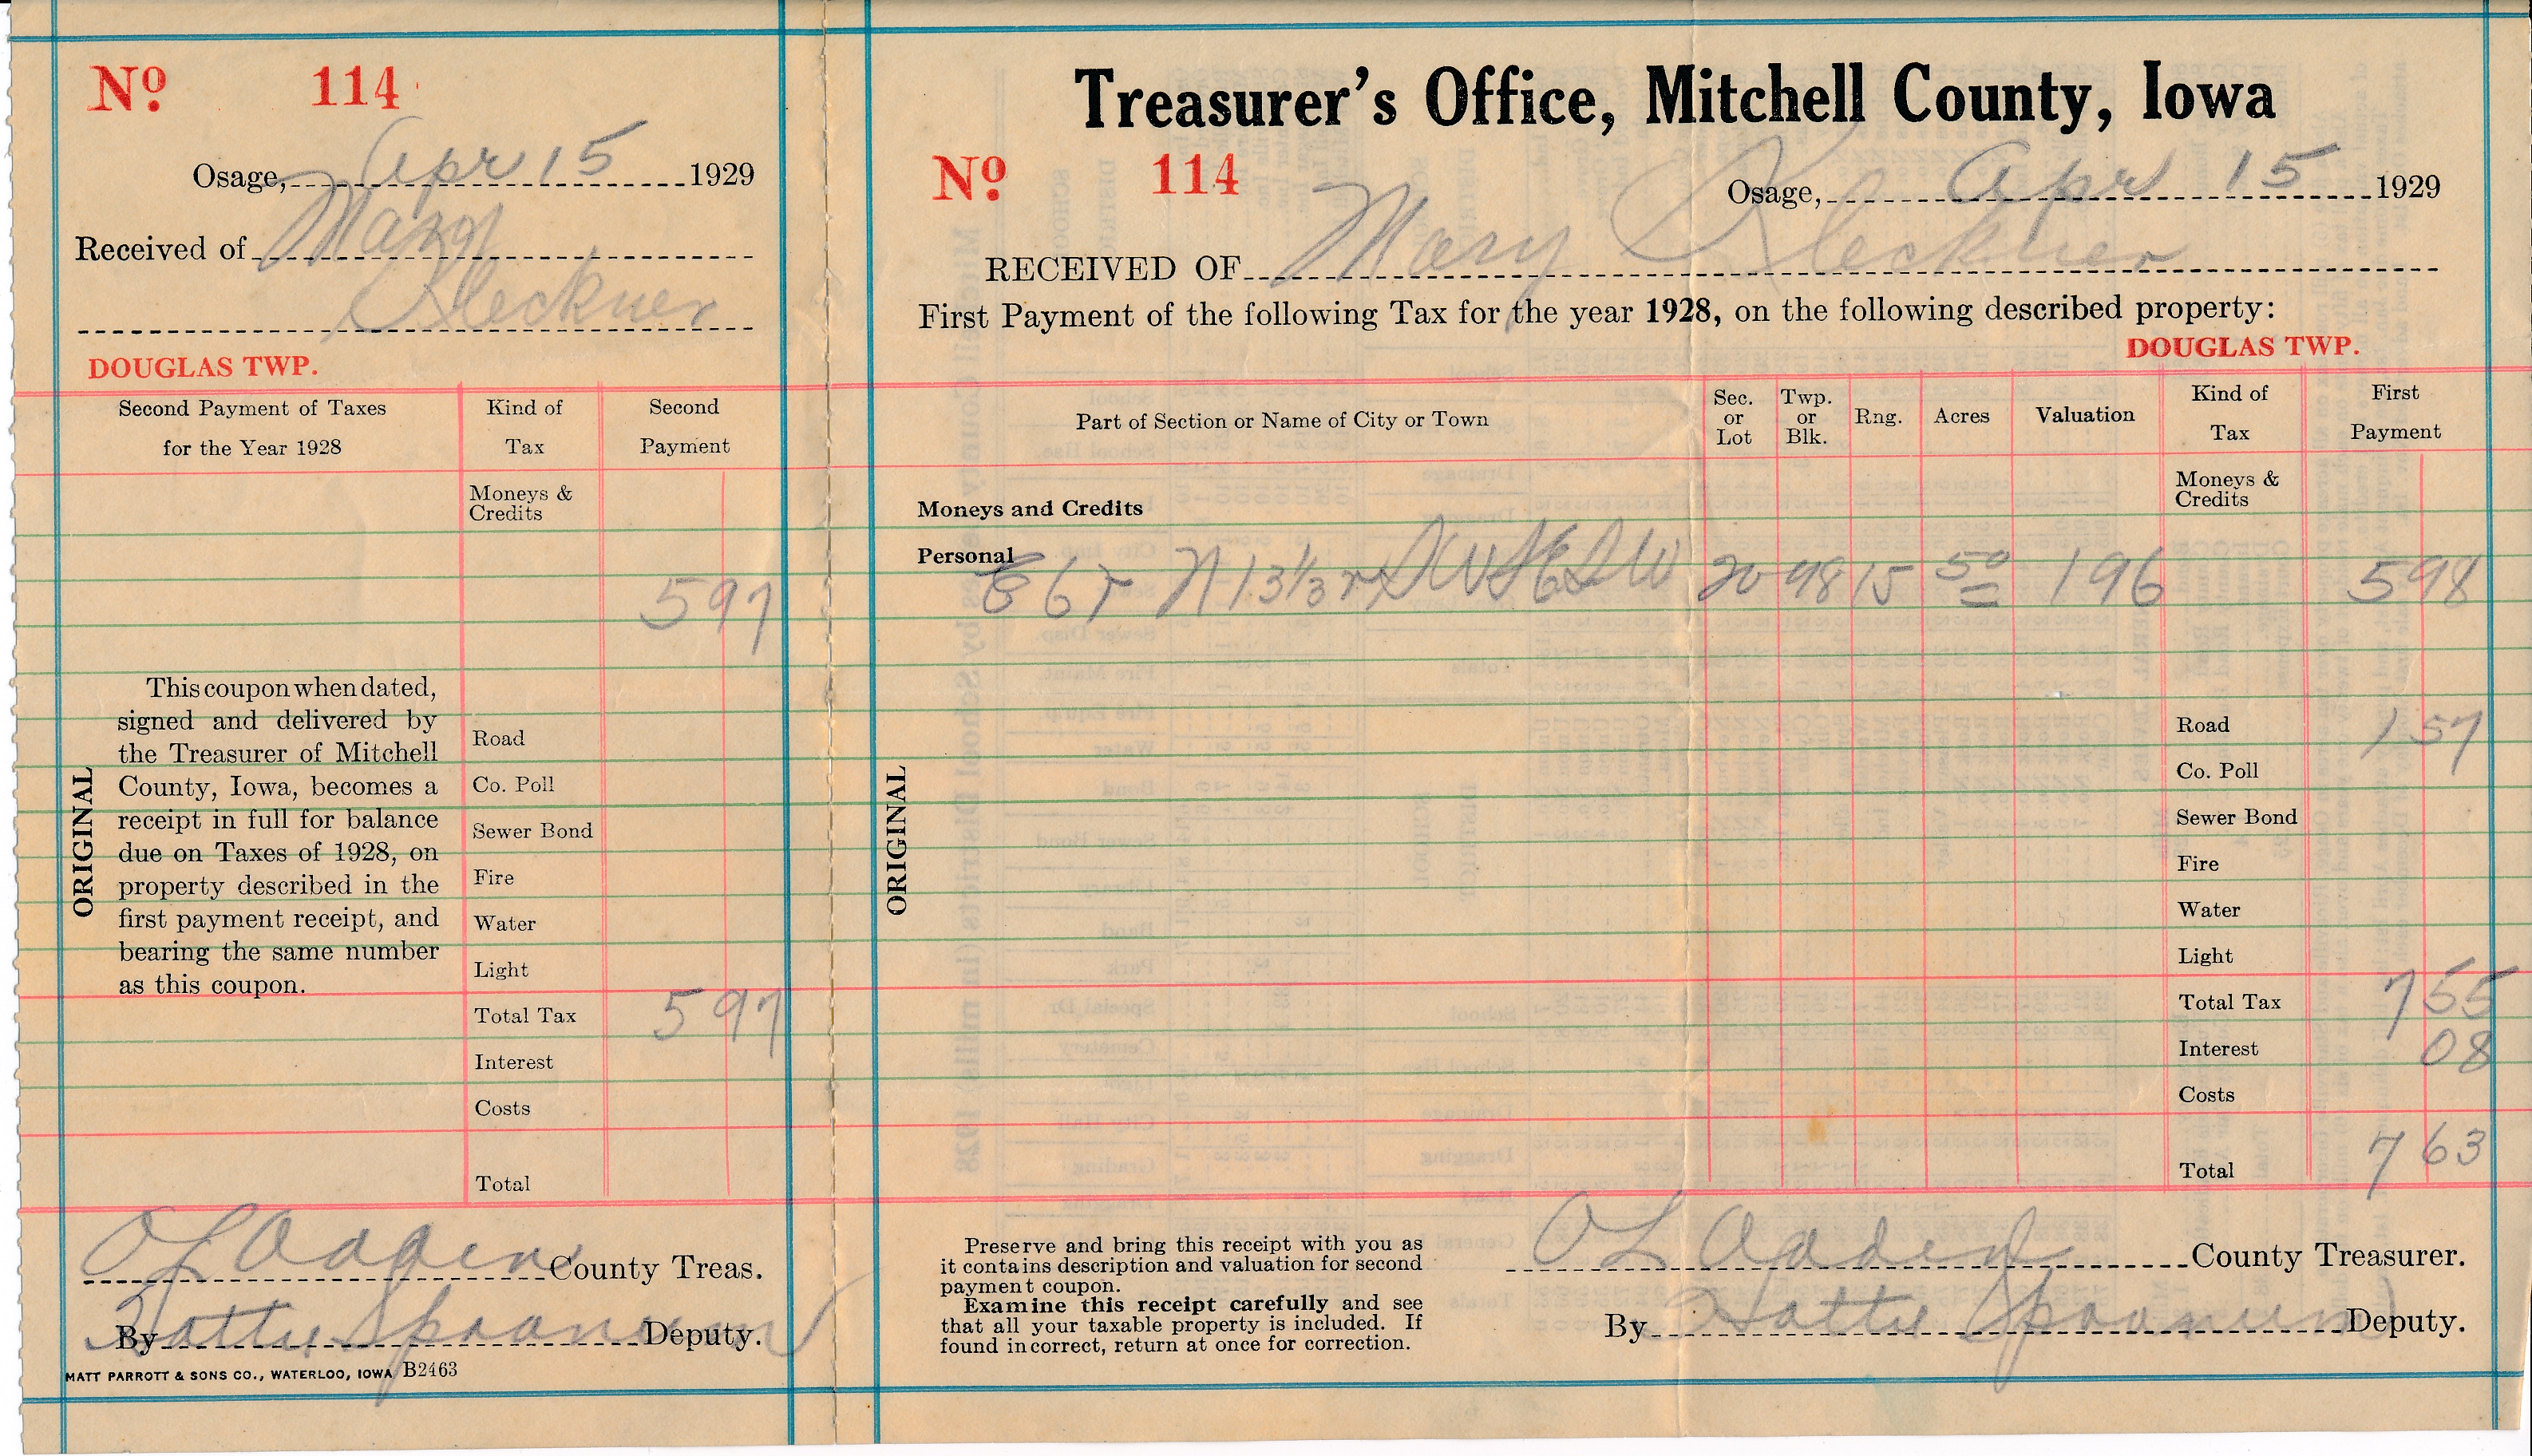 Nº 114
Osage, Apr 15 1929
Received of Mary
Kleckner
DOUGLAS TWP.
Second Payment of Taxes for the Year 1928 Kind of Tax Second Payment
Moneys & Credits
5 97
This coupon when dated,
signed and delivered by
the Treasurer of Mitchell
County, Iowa, becomes a
receipt in full for balance
due on Taxes of 1928, on
property described in the
first payment receipt, and
bearing the same number
as this coupon.
ORIGINAL
Road
Co. Poll
Sewer Bond
Fire
Water
Light
Total Tax 5 97
Interest
Costs
Total
O L County Treas.
By Hattie Deputy.
MATT PARROTT & SONS CO., WATERLOO, IOWA B2463
Treasurer's Office, Mitchell County, Iowa
Nº 114 Osage, Apr 15 1929
RECEIVED OF Mary Kleckner
First Payment of the following Tax for the year 1928, on the following described property:
DOUGLAS TWP.
Part of Section or Name of City or Town Sec. or Lot Twp. or Blk. Rng. Acres Valuation Kind of Tax First Payment
Moneys and Credits Moneys & Credits
Personal
N 13⅓ 20 98 15 50 196 5 98
ORIGINAL
Road 1 57
Co. Poll
Sewer Bond
Fire
Water
Light
Total Tax 7 55
Interest 08
Costs
Total 7 63
Preserve and bring this receipt with you as
it contains description and valuation for second
payment coupon.
Examine this receipt carefully and see
that all your taxable property is included. If
found incorrect, return at once for correction.
O L County Treasurer.
By Hattie Deputy.